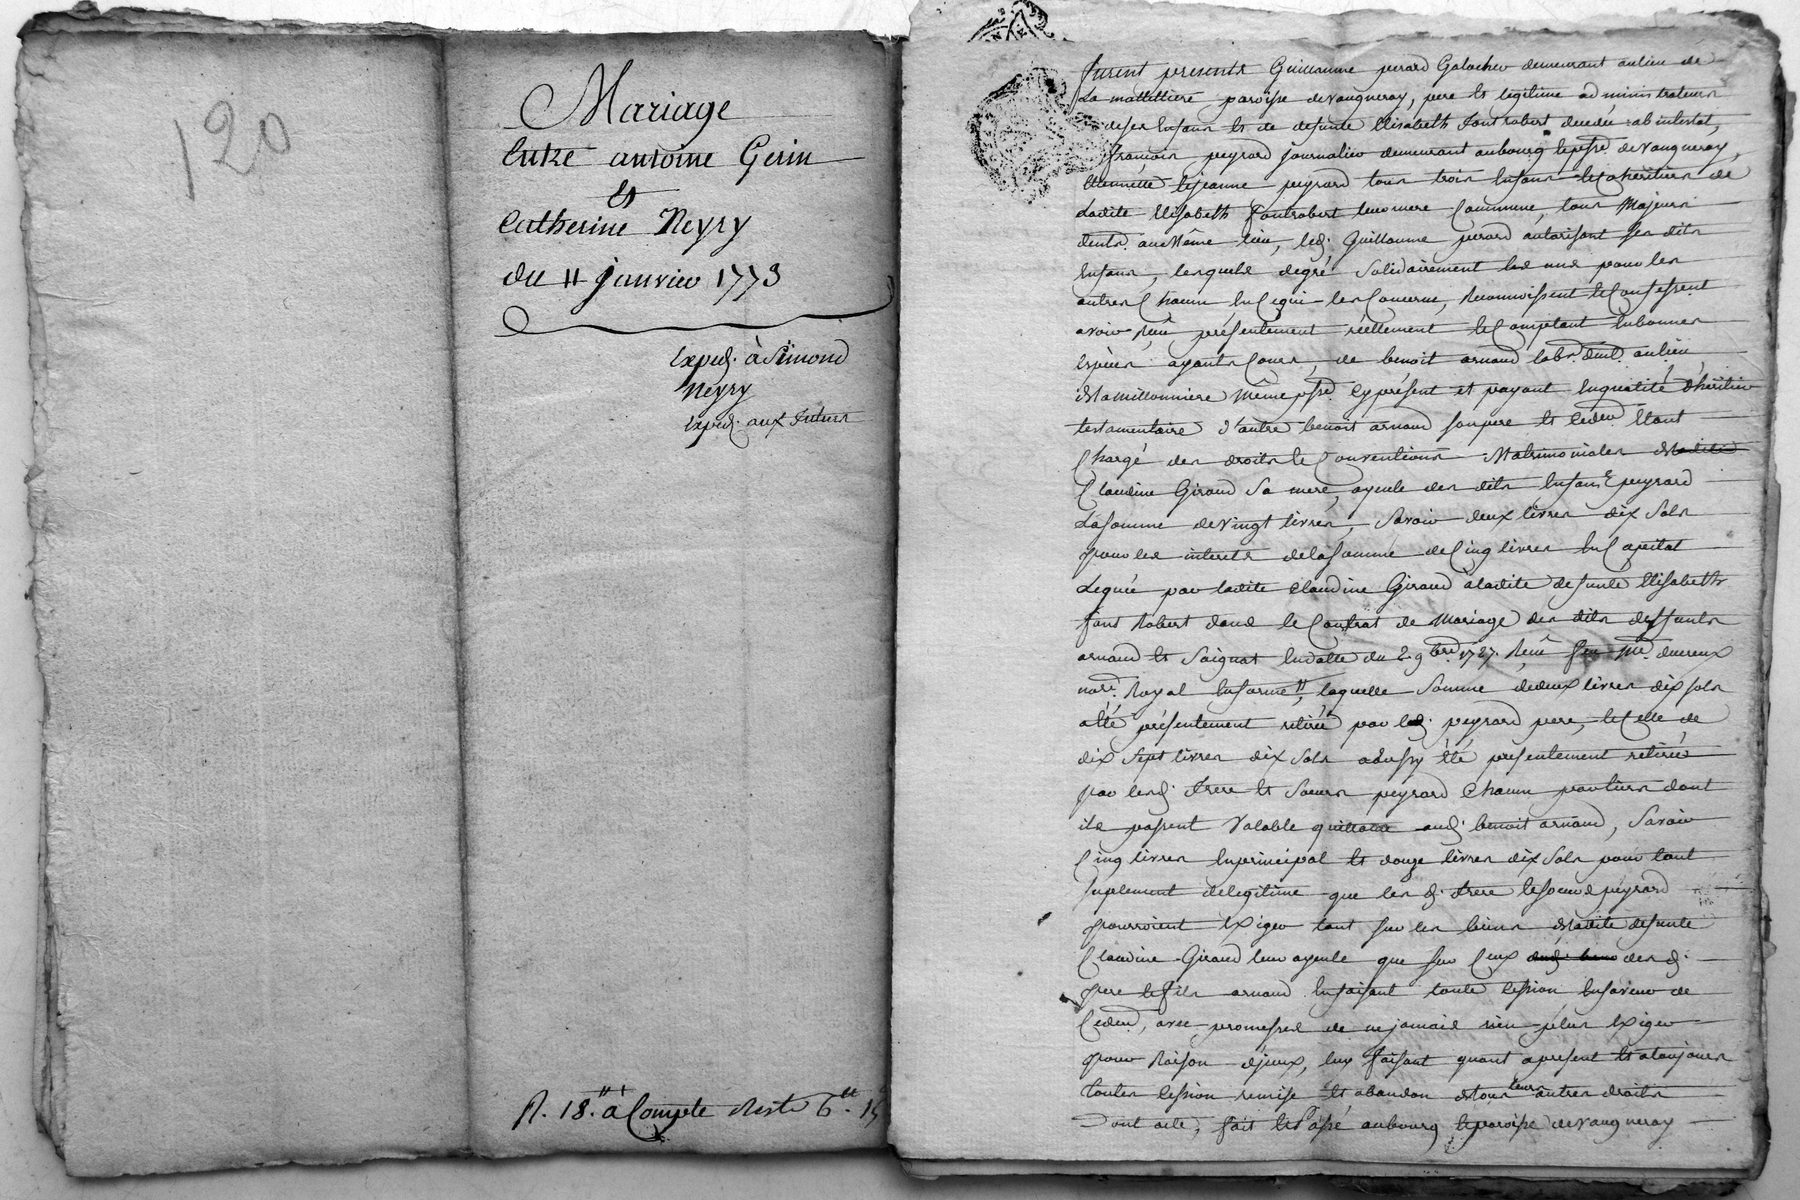 120
Mariage
Entre antoine Gerin
et
Catherine Neyry
du 11 janvier 1773
Exped. à Simond
Neyry
Exped. aux futurs
R. 18.ll à Compte reste 6.ll 15
furent presents Guillaume perard Galochier demeurant au lieu de
La mattilliere paroisse de vaugneray, pere et legitime administrateur
de ses Enfans et de defunte Elisabeth fontrobert decedée ab intestat,
françois peyrard journalier demeurant au bourg et p.sse de vaugneray,
et jeanne peyrard tous trois Enfans et Cohéritiers de
Ladite Elisabeth fontrobert leur mere Commune, tous Majeurs
dem.ts au Même lieu, led. Guillaume perard autorisant ses dits
Enfans, lesquels de gré Solidairement les uns pour les
autres Chacun En Ce qui les Concerne, Reconnoissent et Confessent
avoir Reçû présentement réellement et Comptant En bonnes
Especes ayants Cours, de benoit arnaud lab.r dem.t au lieu
de la millonniere Même p.sse Cy présent et payant En qualité d'héritier
testamentaire d'autre benoit arnaud son pere et Cedern. Etant
Chargé des droits et Conventions Matrimoniales
Claudine Giraud Sa mere, ayeule des dits Enfans peyrard
La somme de vingt livres, Savoir deux livres dix Sols
pour les interets de la somme de Cinq livres En Capital
Leguée par ladite Claudine Giraud à ladite defunte Elisabeth
font Robert dans le Contrat de Mariage des dits deffunts
arnaud et Saignat En datte du 2 9bre 1727. Reçû
no.re Royal En forme, laquelle Somme de deux livres dix sols
a Eté présentement retirée par led. peyrard pere, et Celle de
dix Sept livres dix Sols a aussy Eté presentement retirée
par lesd. frere et Soeurs peyrard Chacun par tiers dont
ils passent Valable quittance aud. benoit arnaud, Savoir
Cinq livres En principal et douze livres dix Sols pour tout
suplement de legitime que les d. frere et soeurs peyrard
pourroient Exiger tant sur les biens de ladite defunte
Claudine Giraud leur ayeule que sur Ceux des d.
pere et fils arnaud En faisant toute Cession En faveur de
avec promesses de ne jamais rien plus Exiger
pour Raison d'iceux, Eux faisant quant a present et a toujours
toutes Cession remise et abandon de tous leurs autres droits
Dont acte, fait et Passé au bourg et paroisse de vaugneray